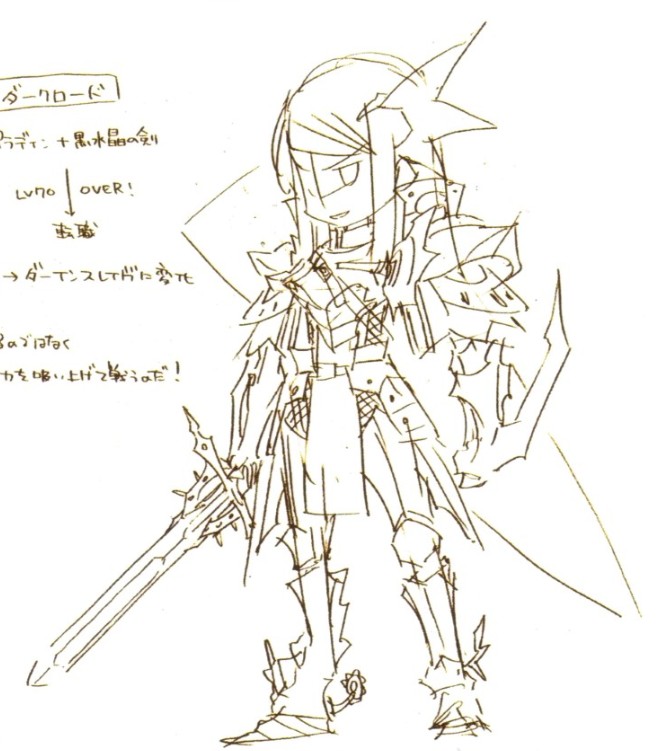 ダークロード
ラディン + 黒水晶の剣
LV70 OVER!
転職
→ ダーインスレイヴに変化
のではなく
力を吸い上げて戦うのだ!